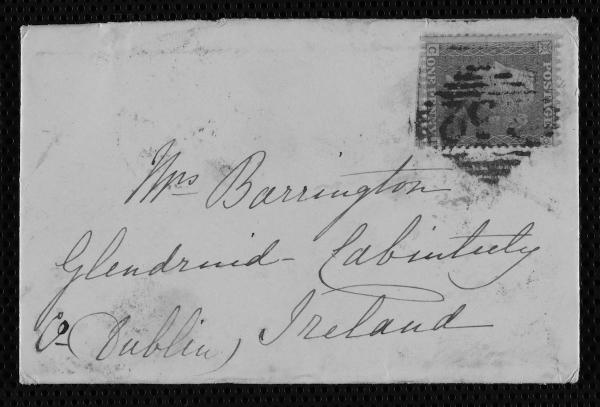 POSTAGE
ONE
32
Mrs Barrington
Glendruid - Cabinteely
Co (Dublin) Ireland